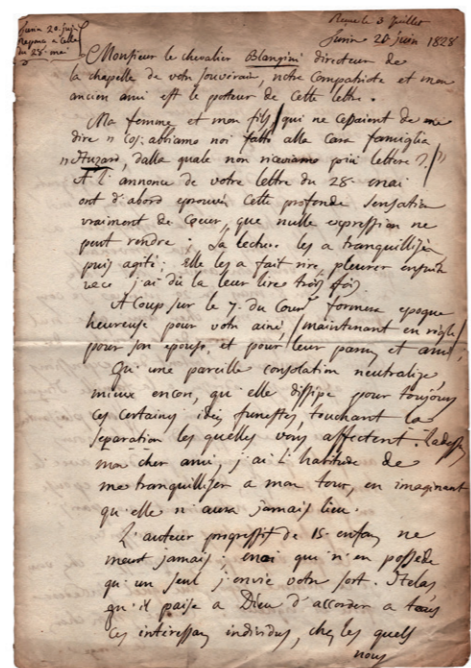 Turin 20. juin
Reponse a celle
du 28. mai
Reçue le 3 Juillet
Turin 20 juin 1828
Monsieur le chevalier Blangini directeur de
la chapelle de votre souverain, notre compatriote et mon
ancien ami est le porteur de cette lettre.
Ma femme et mon fils, qui ne cessaient de me
dire " Cos' abbiamo noi fatto alla cara famiglia
" Huzard, dalla quale non riceviamo più lettere ?. "
A l'annonce de votre lettre du 28. mai
ont d'abord eprouvé cette profonde sensation
vraiment de Coeur, que nulle expression ne
peut rendre : La lecture les a tranquillisés
puis agité ; Elle les a fait rire, pleurer ensuite
j'ai dû la leur lire trois fois.
A Coup sur le 7. du Cour.t formera epoque
heureuse pour votre ainé, maintenant en règle
pour son epouse, et pour leur parens et amis,
Qu'une pareille consolation neutralize
mieux encore, qu'elle dissipe pour toujours
ces certaines idées funestes, touchant la
separation les quelles vous affectent. Ladessus
mon cher ami, j'ai l'habitude de
me tranquilliser a mon tour, en imaginant
qu'elle n'aura jamais lieu.
L'auteur progressif de 15. enfans ne
meurt jamais. moi qui n'en possède
qu'un seul j'envie votre sort. Helas
qu'il paise a Dieu d'accorder a tous
ces interessans individus, chez les quels
nous